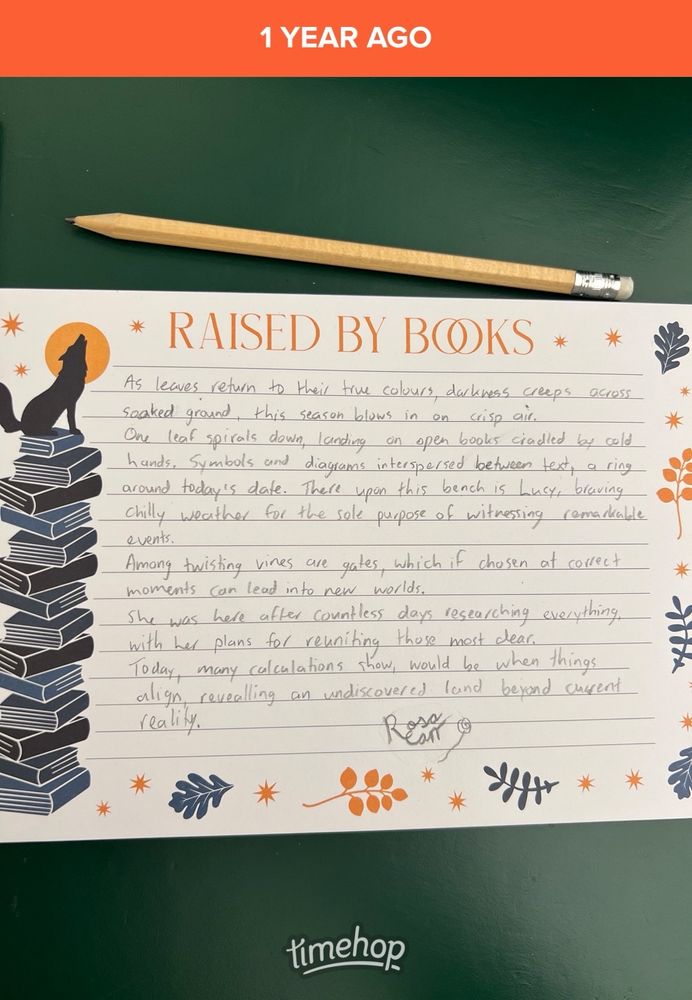 1 YEAR AGO
RAISED BY BOOKS
As leaves return to their true colours, darkness creeps across
soaked ground, this season blows in on crisp air.
One leaf spirals down, landing on open books cradled by cold
hands. Symbols and diagrams interspersed between text, a ring
around today's date. There upon this bench is Lucy, braving
chilly weather for the sole purpose of witnessing remarkable
events.
Among twisting vines are gates, which if chosen at correct
moments can lead into new worlds.
She was here after countless days researching everything,
with her plans for reuniting those most dear.
Today, many calculations show, would be when things
align, revealling an undiscovered land beyond current
reality.
Rosa
Carr
timehop